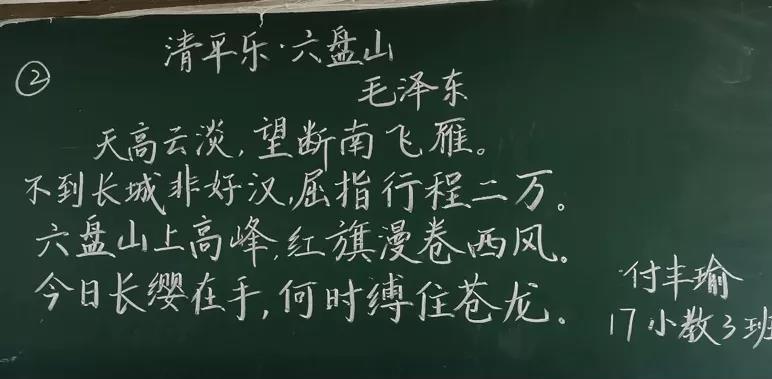 ②
清平乐·六盘山
毛泽东
天高云淡,望断南飞雁。
不到长城非好汉,屈指行程二万。
六盘山上高峰,红旗漫卷西风。
今日长缨在手,何时缚住苍龙。
付丰瑜
17小教3班